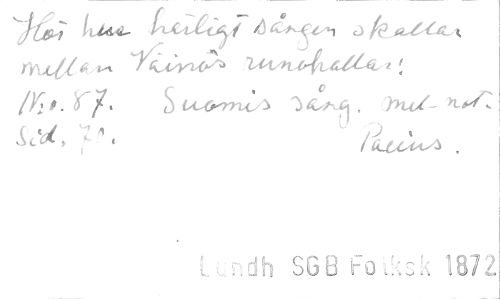 Hör hur härligt sången skallar
mellan Väinös runohallar!
N:o. 87. Suomis sång. med not.
Sid. 70. Pacius.
Lundh SGB Folksk 1872